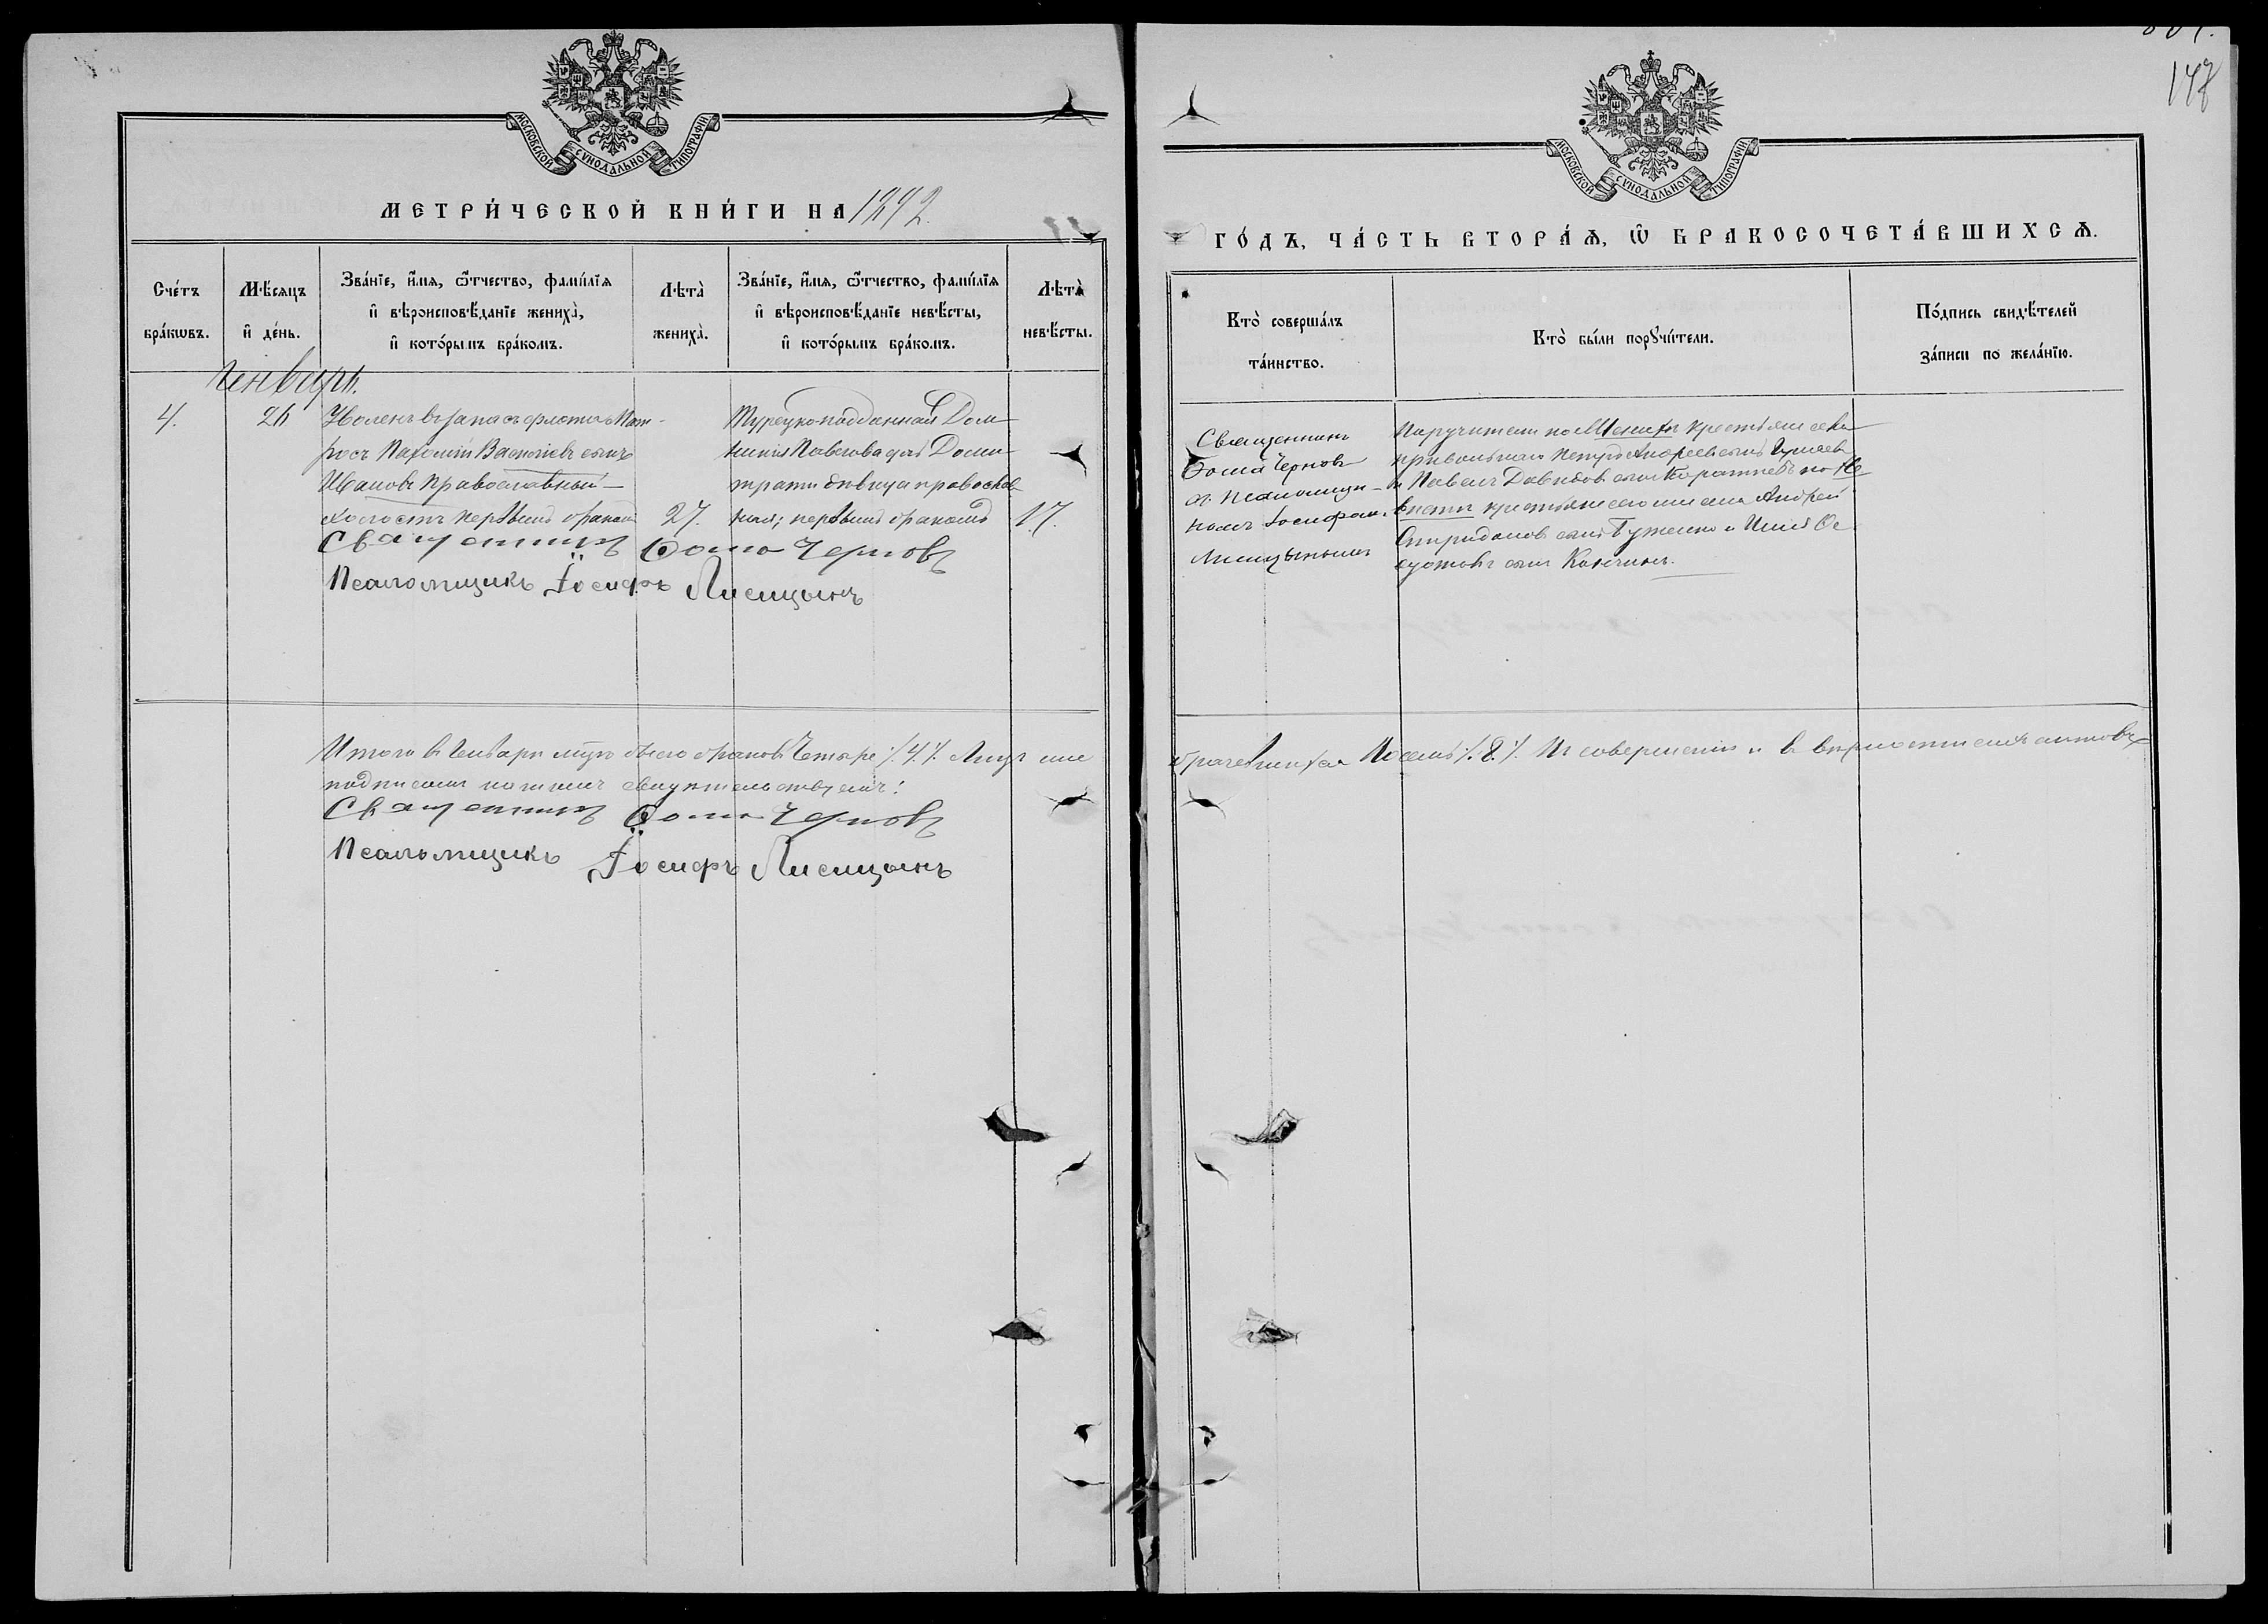 МОСКОВСКОЙ СѴНОДАЛЬНОЙ ТИПОГРАФІИ
МЕТРИ́ЧЕСКОЙ КНИ́ГИ НА 1892.
Сче́тъ бра́кѡвъ.
М҄ѣсяцъ и҆ де́нь.
Зва́нїе, и҆́мя, ѻ҆́тчество, фами́лїя
и҆ вѣроисповѣ́данїе жениха̀,
и҆ кото́рымъ бра́комъ.
Лѣта̀ жениха̀.
Зва́нїе, и҆́мя, ѻ҆́тчество, фами́лїя
и҆ вѣроисповѣ́данїе невѣ́сты,
и҆ кото́рымъ бра́комъ.
Лѣта̀ невѣ́сты.
Генварь.
4.
26
Уволенъ въ запасъ флота Мат-
росъ Пахомій Васильевъ сынъ
Ивановъ православный
холостъ первымъ бракомъ
27.
Турецко-подданная Дом-
никія Павлова дочь Доми-
трати дѣвица православ
ная; первымъ бракомъ
17.
Священникъ Ѳома Черновъ
Псаломщикъ Іосифъ Лисицынъ
Итого въ Генварѣ мѣсяцѣ было браковъ Четыре /.4./. Лицъ
подписомъ свидѣтельствуемъ:
Священникъ Ѳома Черновъ
Псаломщикъ Іосифъ Лисицынъ
147
МОСКОВСКОЙ СѴНОДАЛЬНОЙ ТИПОГРАФІИ
ГО́ДЪ, ЧА́СТЬ ВТОРА́Ѧ, Ѡ҆ БРАКОСОЧЕТА́ВШИХСѦ.
Кто̀ соверша́лъ
та́инство.
Кто̀ бы́ли порꙋчи́тели.
По́дпись свидѣ́телей
за́писи по жела́нїю.
Священникъ
Ѳома Черновъ
съ псаломщи-
комъ Іосифомъ
Лисицынымъ
Поручители по Женихѣ крестьяне села
Петръ Андреевъ сынъ
и Павелъ Давидовъ сынъ по Не
вѣстѣ крестьяне Андрей
Спиридоновъ сынъ Гуженко и
сынъ
Восемь /.8./. въ вѣрности сихъ актовъ